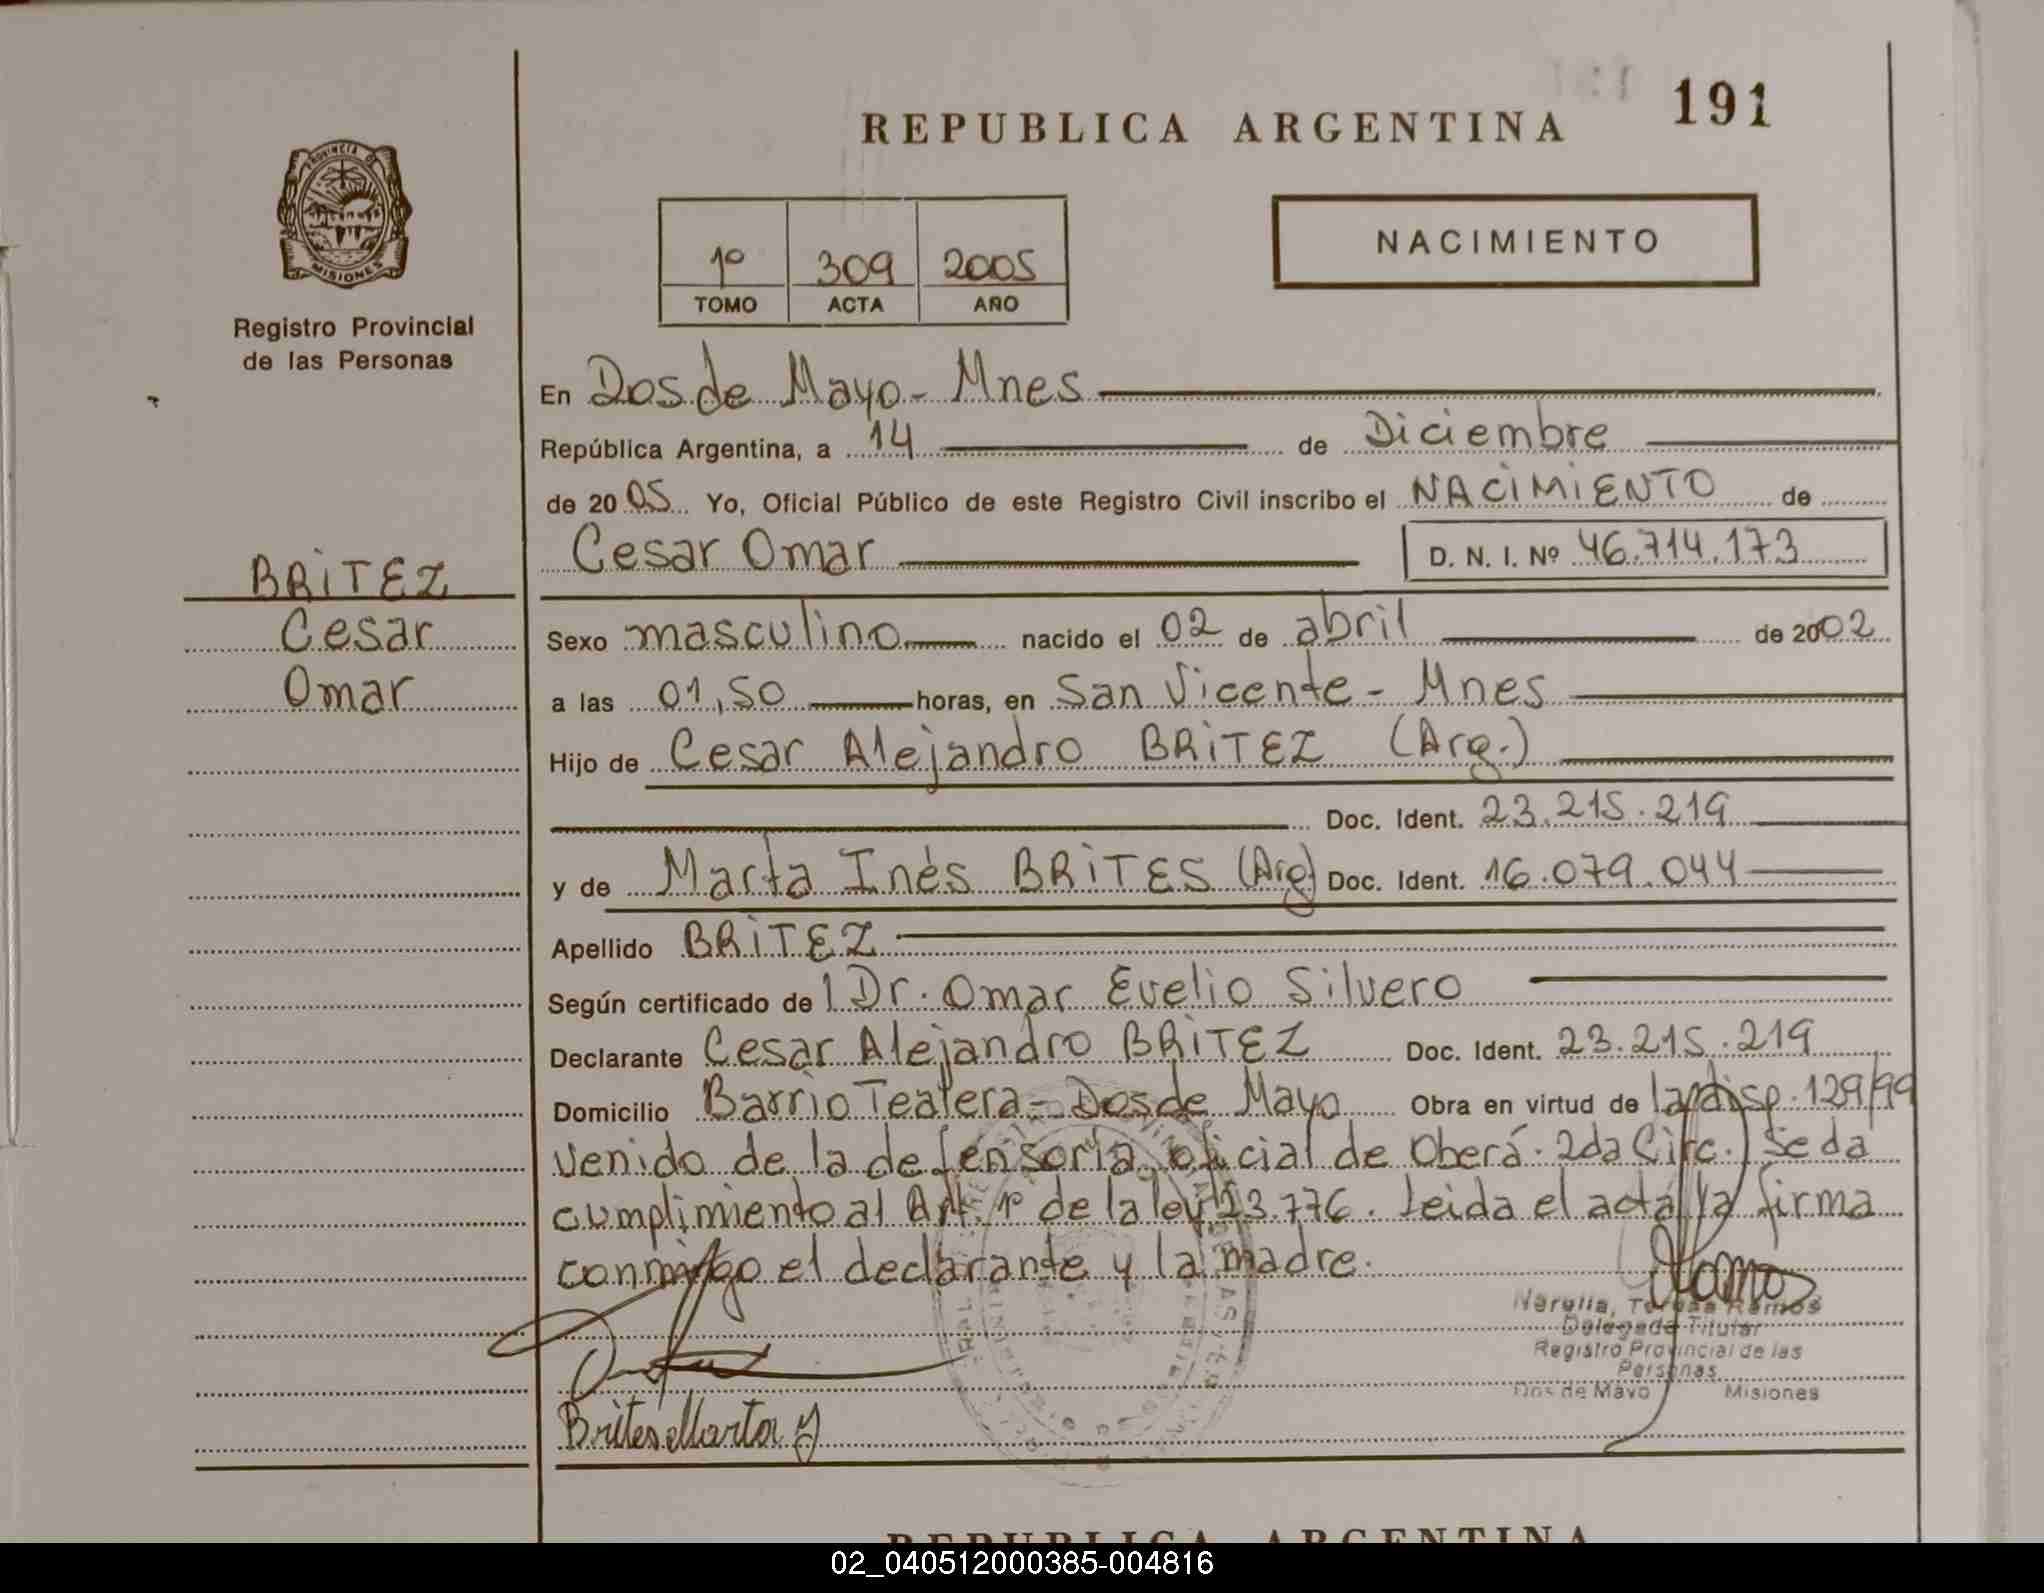 191
REPUBLICA ARGENTINA
PROVINCIA DE
MISIONES
Registro Provincial
de las Personas
1º 309 2005
TOMO ACTA AÑO
NACIMIENTO
En Dos de Mayo - Mnes
República Argentina, a 14 de Diciembre
de 2005 Yo, Oficial Público de este Registro Civil inscribo el NACIMIENTO de
Cesar Omar D. N. I. Nº 46.714.173
BRITEZ
Cesar
Omar
Sexo masculino nacido el 02 de abril de 2002
a las 01,50 horas, en San Vicente - Mnes
Hijo de Cesar Alejandro BRITEZ (Arg.)
Doc. Ident. 23.215.219
y de Marta Inés BRITES (Arg) Doc. Ident. 16.079.044
Apellido BRITEZ
Según certificado de l Dr. Omar Evelio Silvero
Declarante Cesar Alejandro BRITEZ Doc. Ident. 23.215.219
Domicilio Barrio Tealera - Dos de Mayo Obra en virtud de la disp. 129/99
venido de la defensoría oficial de Oberá. 2da Circ. Se da
cumplimiento al Art. 1º de la ley 23.776. Leida el acta la firma
conmigo el declarante y la madre.
Ramos
Teresa Ramos
Delegada Titular
Registro Provincial de las
Personas
Dos de Mayo Misiones
Brites Marta
REPUBLICA ARGENTINA
02_040512000385-004816